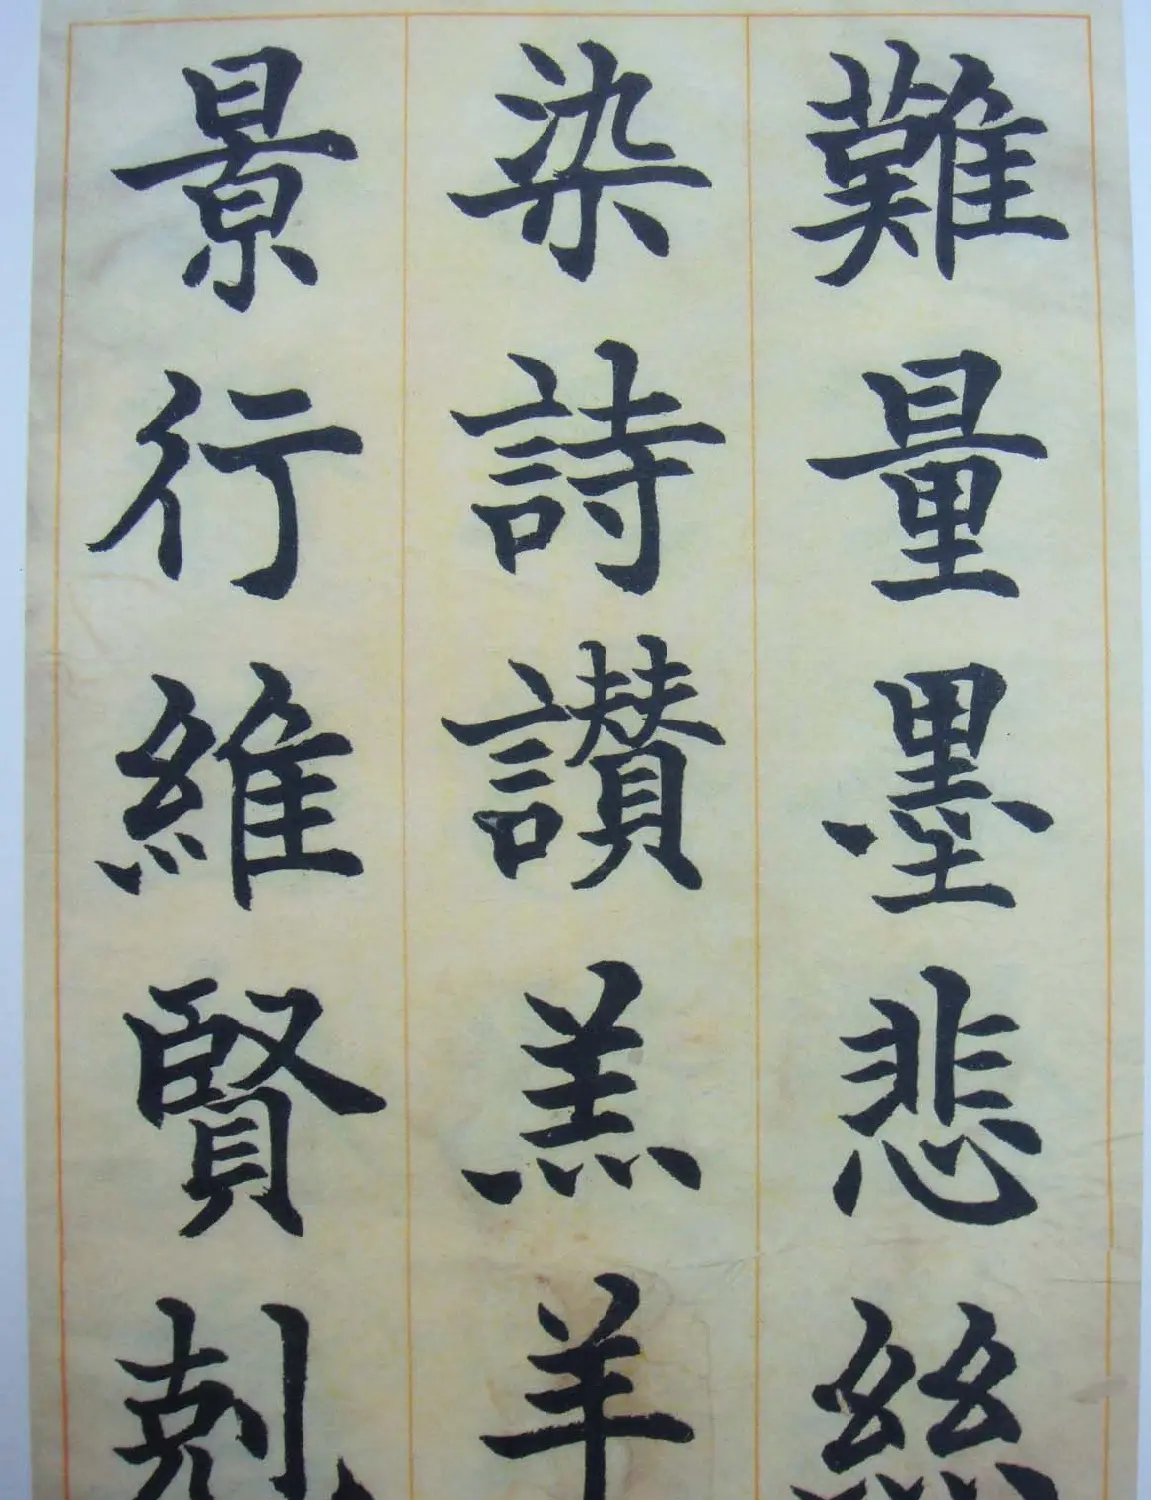 難量墨悲絲
染詩讃羔羊
景行維賢剋